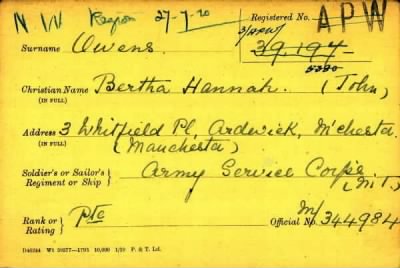 N W Region 27-7-20 Registered No. APW
3/APW/
Surname Owens. 39,194
5380
Christian Name Bertha Hannah. (John)
(IN FULL)
Address 3 Whitfield Pl, Ardwick, M'chesta.
(IN FULL) (Manchesta)
Soldier's or Sailor's Regiment or Ship Army Service Corps.
(M.T.)
Rank or Rating Pte Official No. M/344984
D46344 Wt 59277—1795 10,000 1/19 P. & T. Ld.